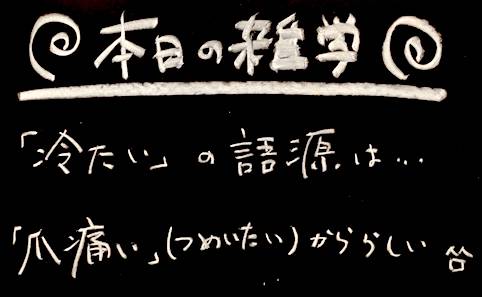 本日の雑学
「冷たい」の語源は…
「爪痛い」(つめいたい)かららしい 笑